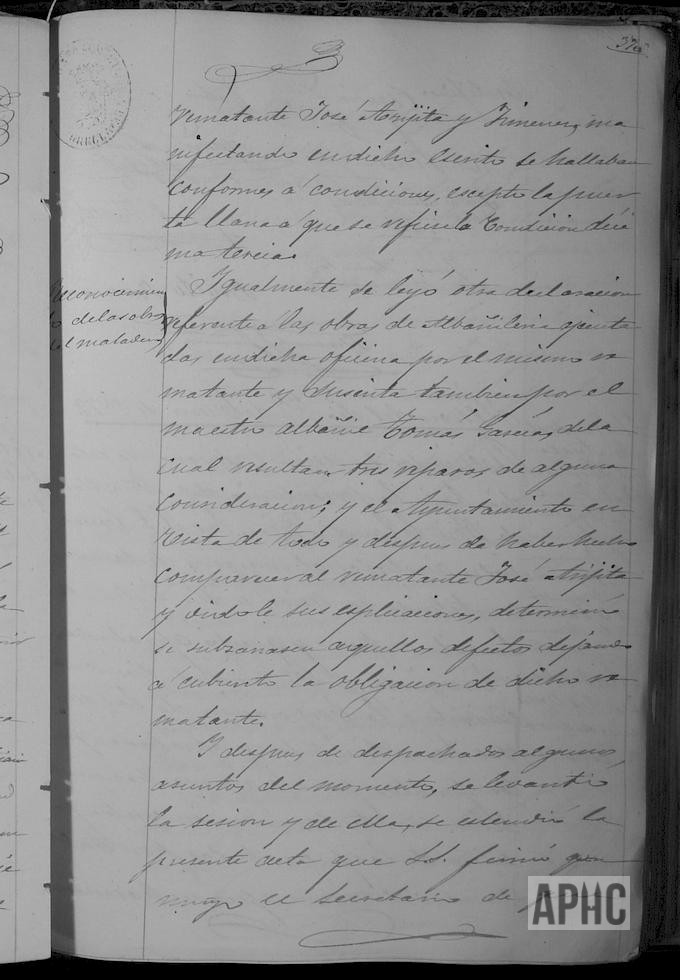 3
rematante José Arijita y Jimenez, ma
nifestando en dicho escrito se hallaban
conformes á condiciones, escepto la puer
ta llana á que se refiere la Condicion déci
ma tercia.
Reconocimien
to de las obras
del matadero
Igualmente se leyó otra declaracion
referente á las obras de Albañileria ejecuta
das en dicha oficina por el mismo re
matante y suscrita tambien por el
maestro albañil Tomás Garcia, de la
cual resultan tres reparos de alguna
consideracion; y el Ayuntamiento en
vista de todo y despues de haber hecho
comparecer al rematante José Arijita
y oidole sus esplicaciones, determinó
se subsanasen aquellos defectos dejando
á cubierto la obligacion de dicho re
matante.
I despues de despachados algunos
asuntos del momento, se levantó
la sesion y de ella, se estendió la
presente acta que S.S. firmó con
migo el Secretario de
APHC